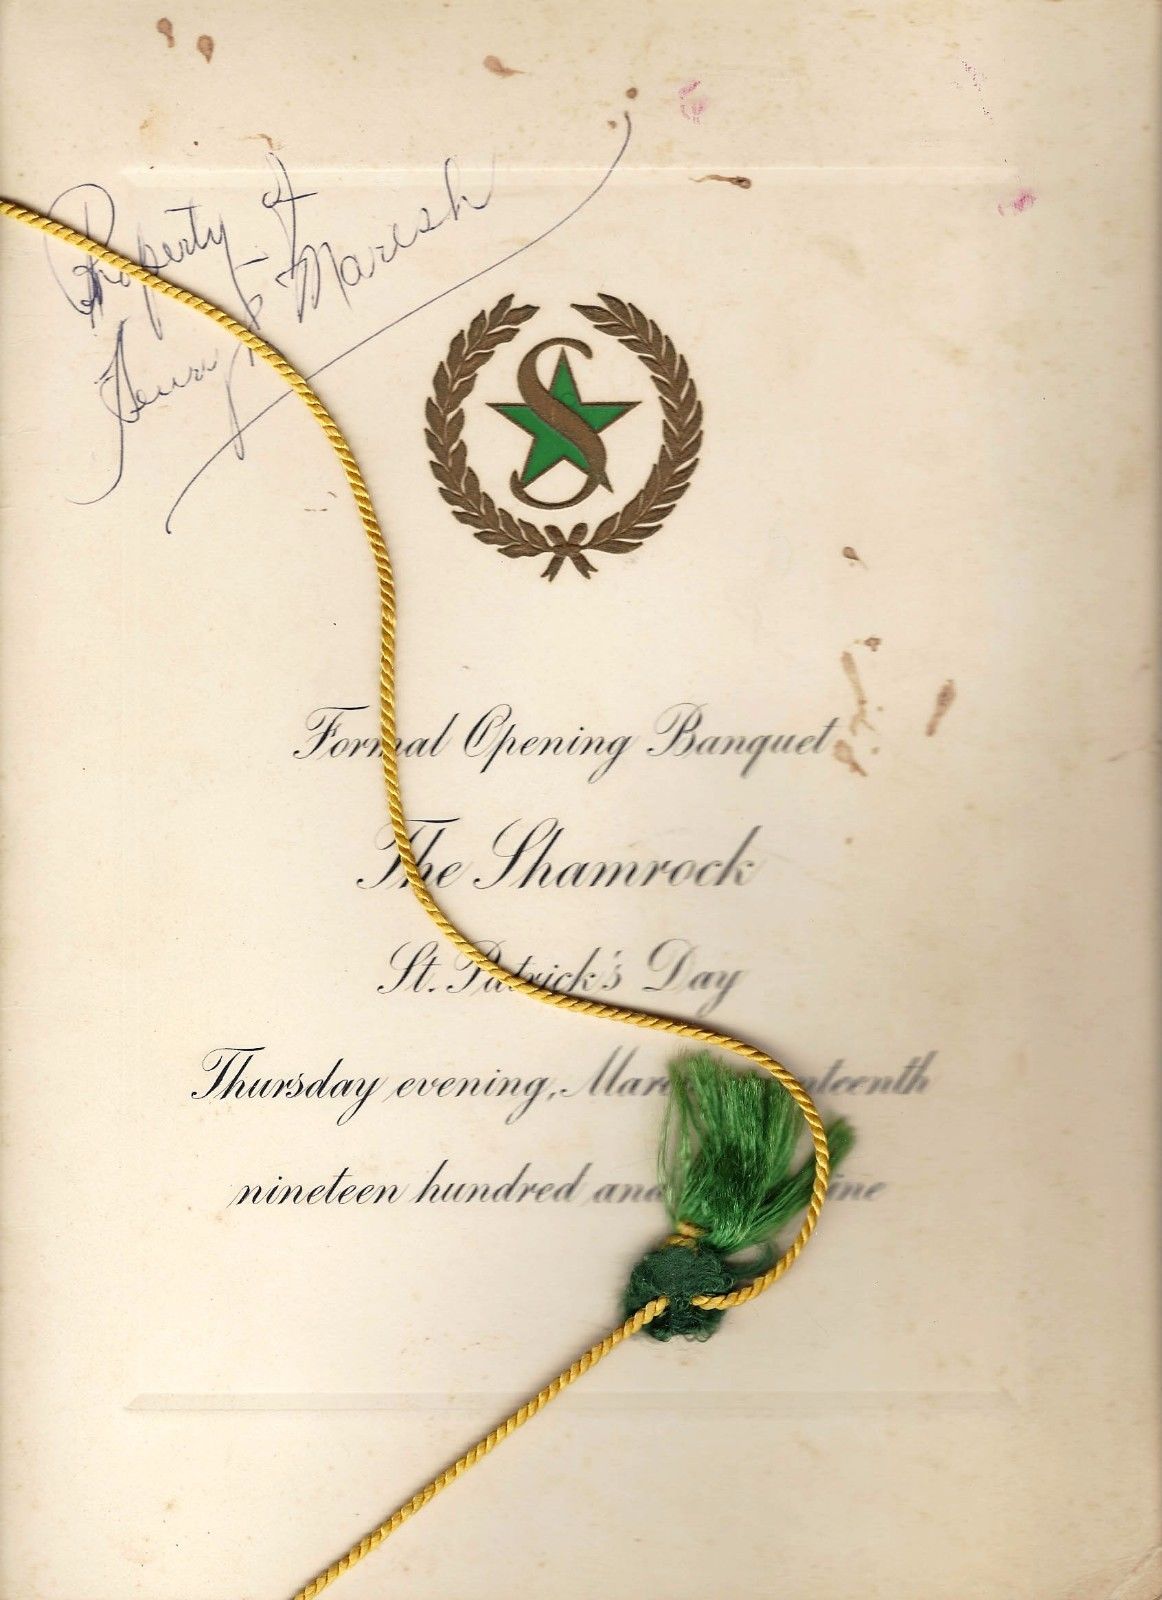 Property of
Henri F. Maresh
S
Formal Opening Banquet
The Shamrock
St. Patrick's Day
Thursday evening, March seventeenth
nineteen hundred and